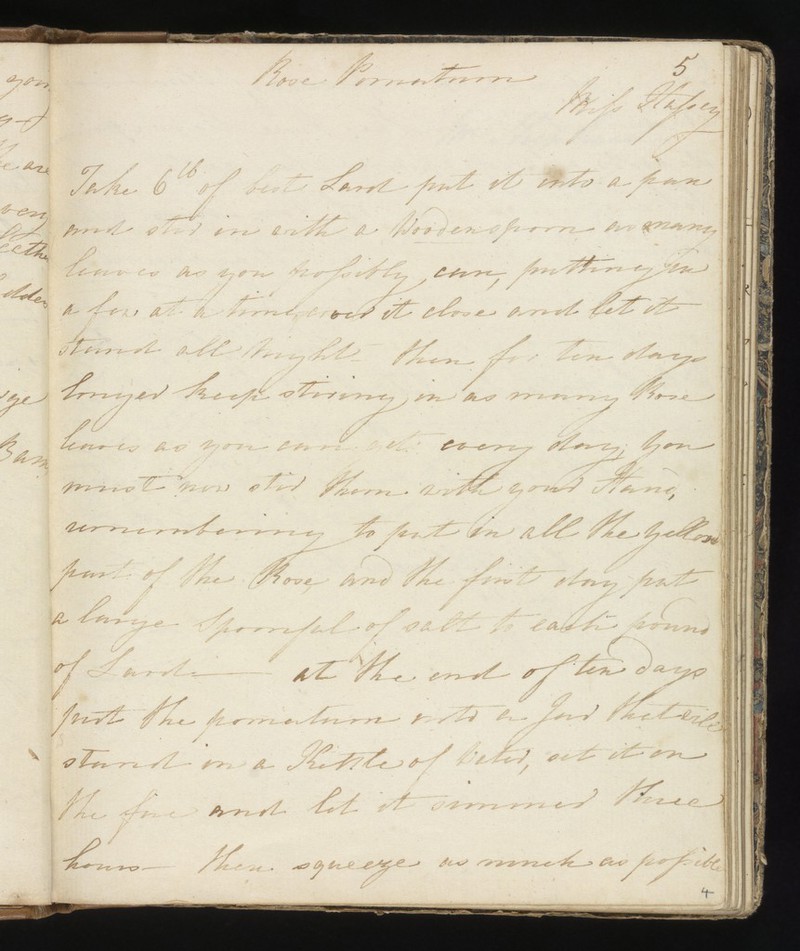 5
Rose Pomatum
Miss Hassey
Take 6 lb of best Lard put it into a pan
and stir in with a Wooden spoon as many
leaves as you possibly can, putting in
a few at a time, cover it close and let it
stand all Night then for ten days
longer keep stiring in as many Rose
leaves as you can get every day, you
must now stir them with your Hand,
remembering to put in all the yellow
part of the Rose, and the first day put
a large spoonful of salt to each pound
of Lard — at the end of ten days
put the pomatum into a Jar that will
stand in a Kettle of Water, set it on
the fire and let it simmer three
hours — then squeeze as much as possible
4